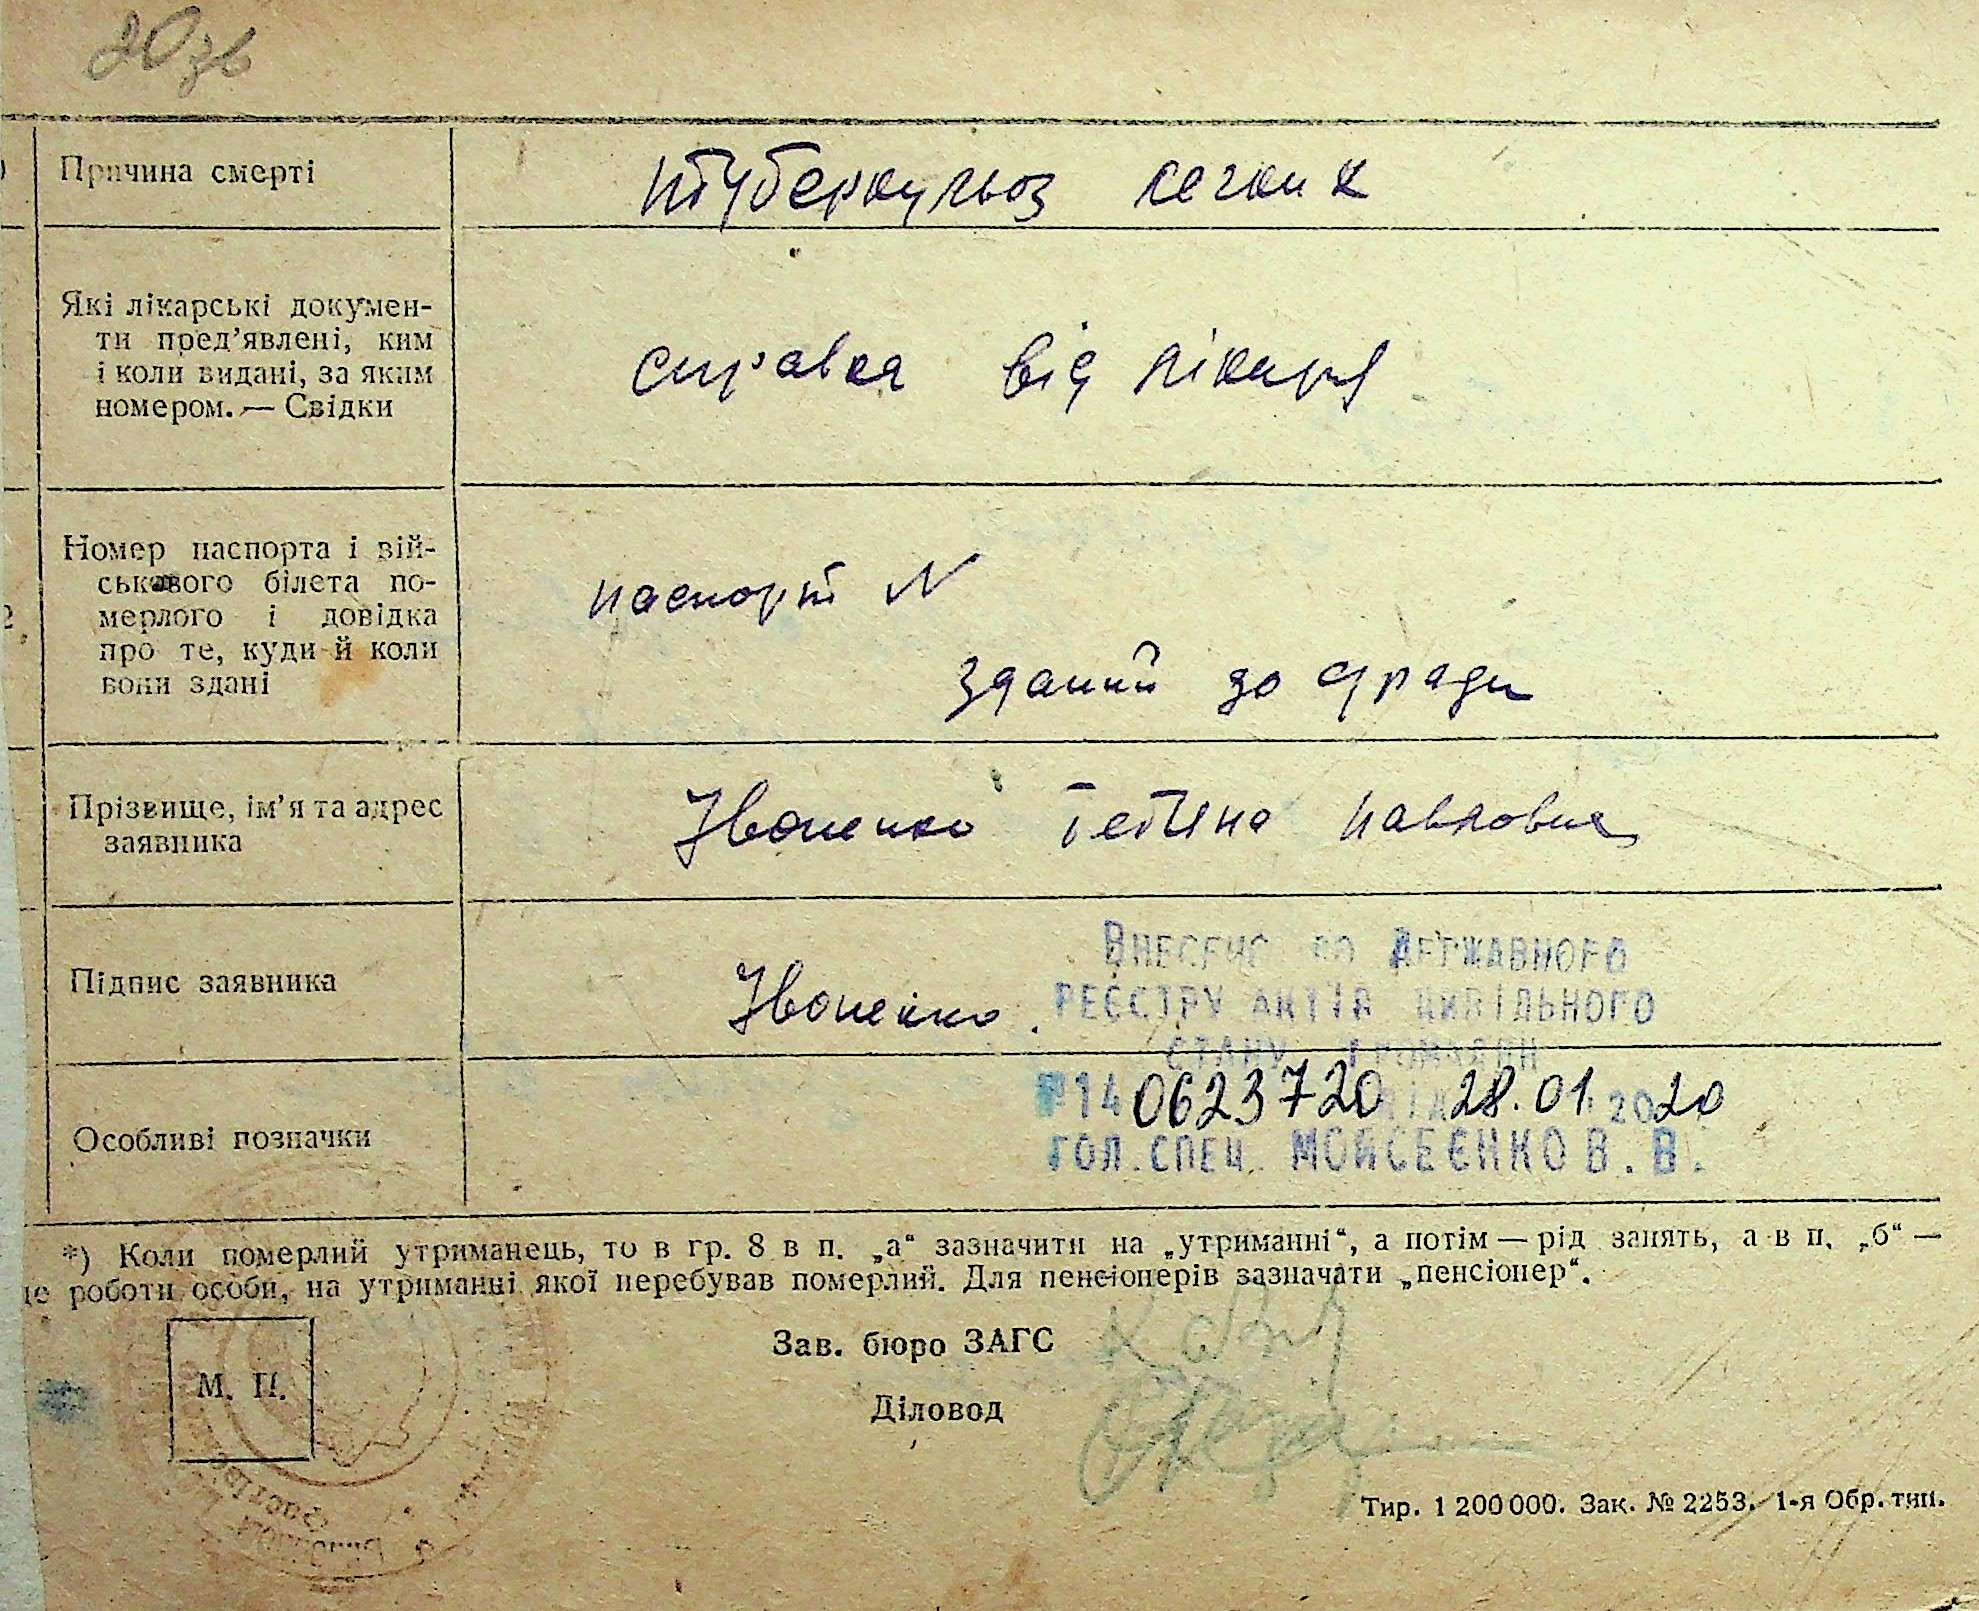 20 зв
Причина смерті
туберкульоз легких
Які лікарські докумен-
ти пред'явлені, ким
і коли видані, за яким
номером. — Свідки
справка від лікаря
Номер паспорта і вій-
ськового білета по-
мерлого і довідка
про те, куди й коли
вони здані
паспорт №
зданий до с/ради
Прізвище, ім'я та адрес
заявника
Івоненко Тетяна Павловна
Підпис заявника
Івоненко.
Внесене до Державного
реєстру актів цивільного
стану громадян
№140623720 від 28.01.2020
гол. спец. Мойсеєнко В. В.
Особливі позначки
*) Коли померлий утриманець, то в гр. 8 в п. „а“ зазначити на „утриманні“, а потім — рід занять, а в п. „б“ —
це роботи особи, на утриманні якої перебував померлий. Для пенсіонерів зазначати „пенсіонер“.
Зав. бюро ЗАГС
М. П.
Діловод
Тир. 1 200 000. Зак. № 2253. 1-я Обр. тип.